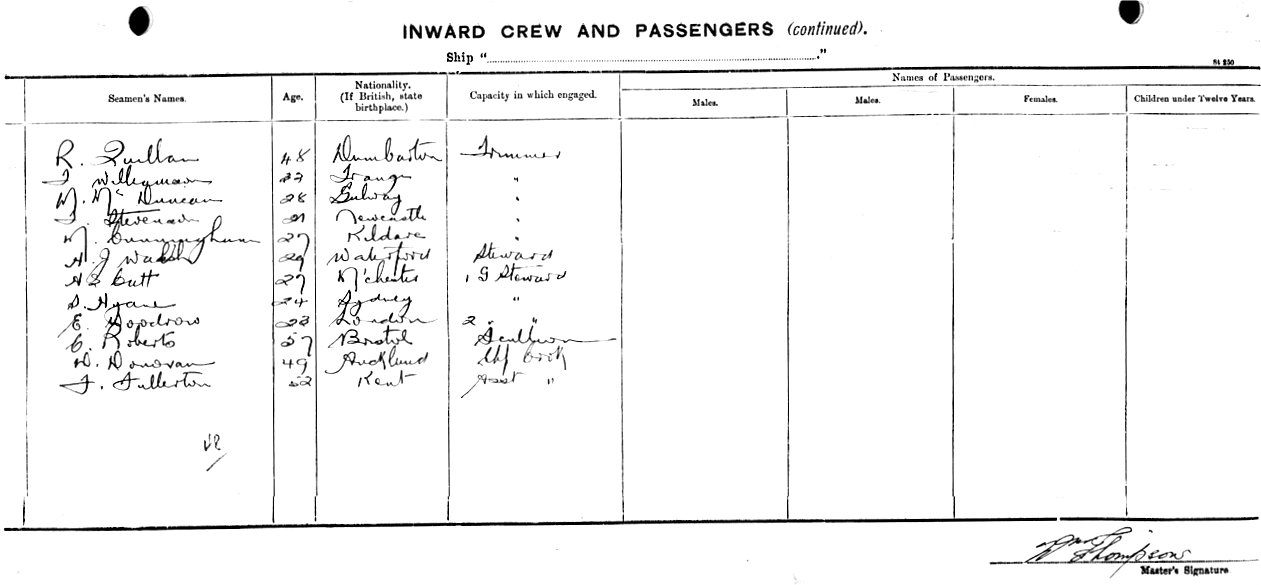 INWARD CREW AND PASSENGERS (continued).
Ship "
"
St 250
Seamen's Names.
Age.
Nationality.
(If British, state
birthplace.)
Capacity in which engaged.
Names of Passengers.
Males.
Males.
Females.
Children under Twelve Years.
R. Quillan 48 Dumbarton Trimmer
"
M. Mc Duncan 28 Galway "
Stevenson 21 Newcastle "
M. Cunningham 27 Kildare "
H. J Walsh 29 Waterford Steward
H Cutt 27 M'chester 1 G Steward
24 Sydney "
E. Woodrow 23 London 2 " "
C. Roberts 57 Bristol Scullion
D. Donovan 49 Auckland Chf Cook
F. Fullerton 52 Kent Asst "
Wm Thompson
Master's Signature